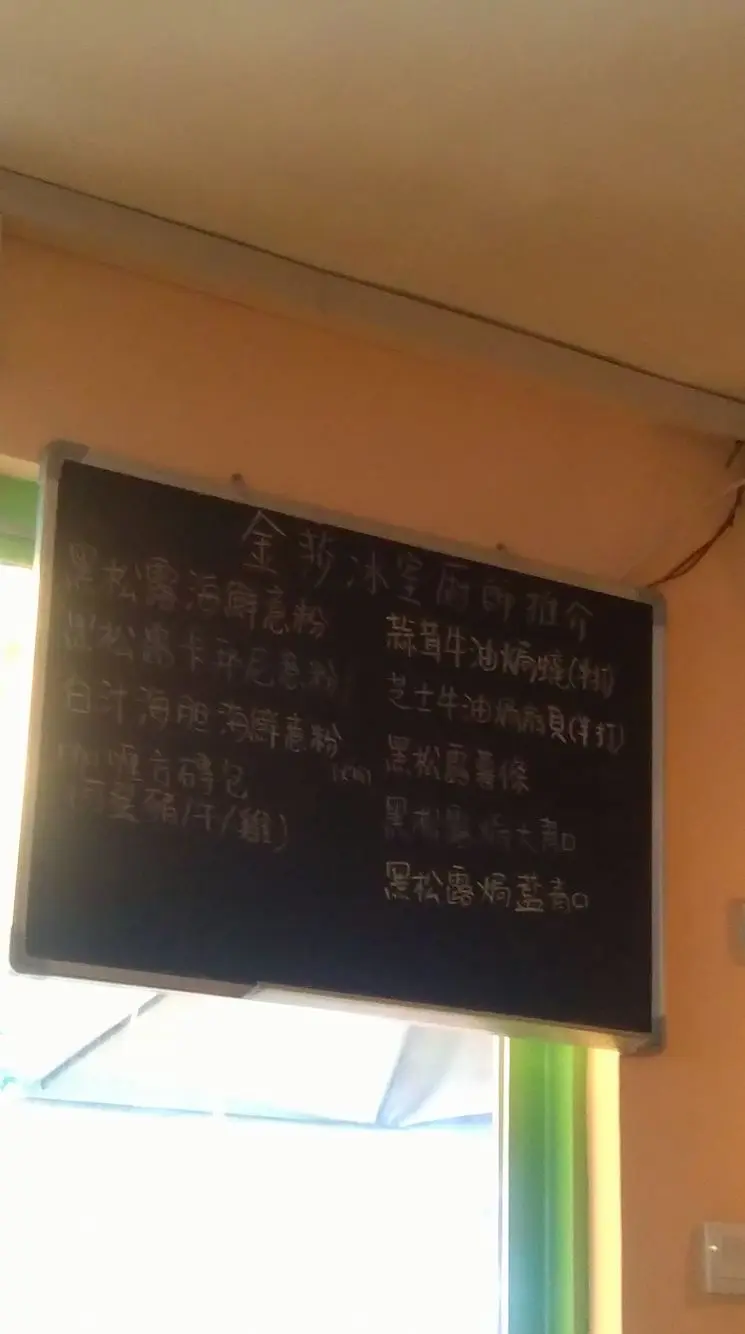 金莎冰室廚師推介
黑松露海鮮意粉
黑松露卡邦尼意粉
白汁海胆海鮮意粉
喱古磚包
豬/牛/雞)
蒜茸牛油焗蠔(半打)
芝士牛油焗扇貝(半打)
黑松露薯條
黑松露焗大青口
黑松露焗藍青口